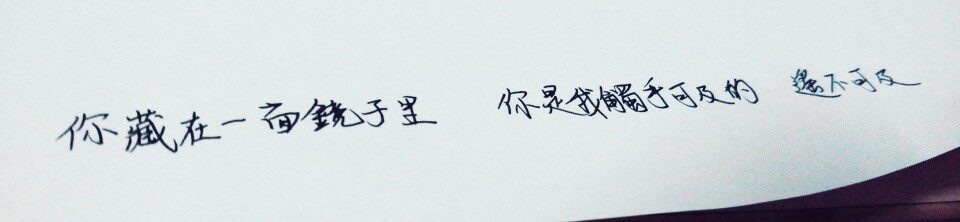 你藏在一面鏡子里 你是我觸手可及的 遙不可及